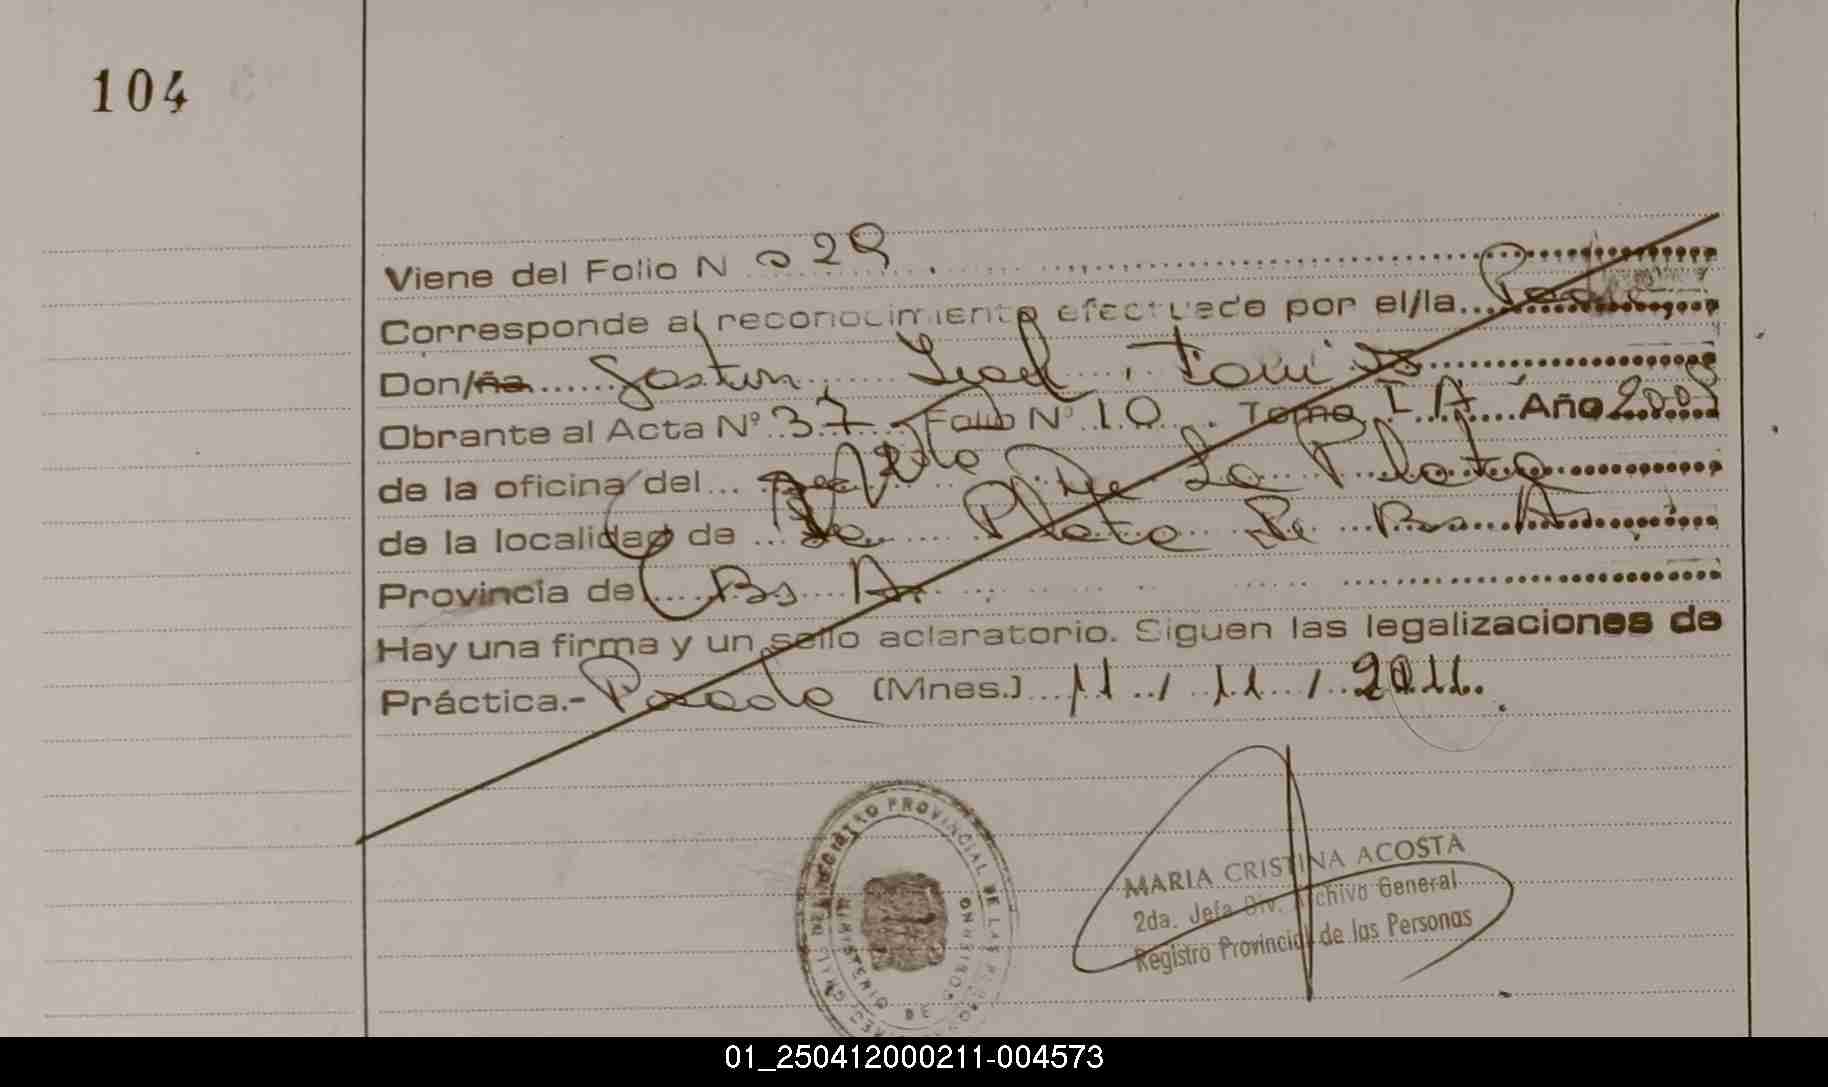 104
Viene del Folio Nº 29
Corresponde al reconocimiento efectuado por el/la
Don/ña Gaston
Obrante al Acta Nº 37 Folio Nº 10 Tomo I A Año 2008
de la oficina del De La Plata
de la localidad de La Plata Bs As
Provincia de Bs A.
Hay una firma y un sello aclaratorio. Siguen las legalizaciones de
Práctica.- Posadas (Mnes.) 11 / 11 / 2011.
REGISTRO PROVINCIAL DE LAS PERSONAS
MINISTERIO DE GOBIERNO
MARIA CRISTINA ACOSTA
2da. Jefa Div. Archivo General
Registro Provincial de las Personas
01_250412000211-004573